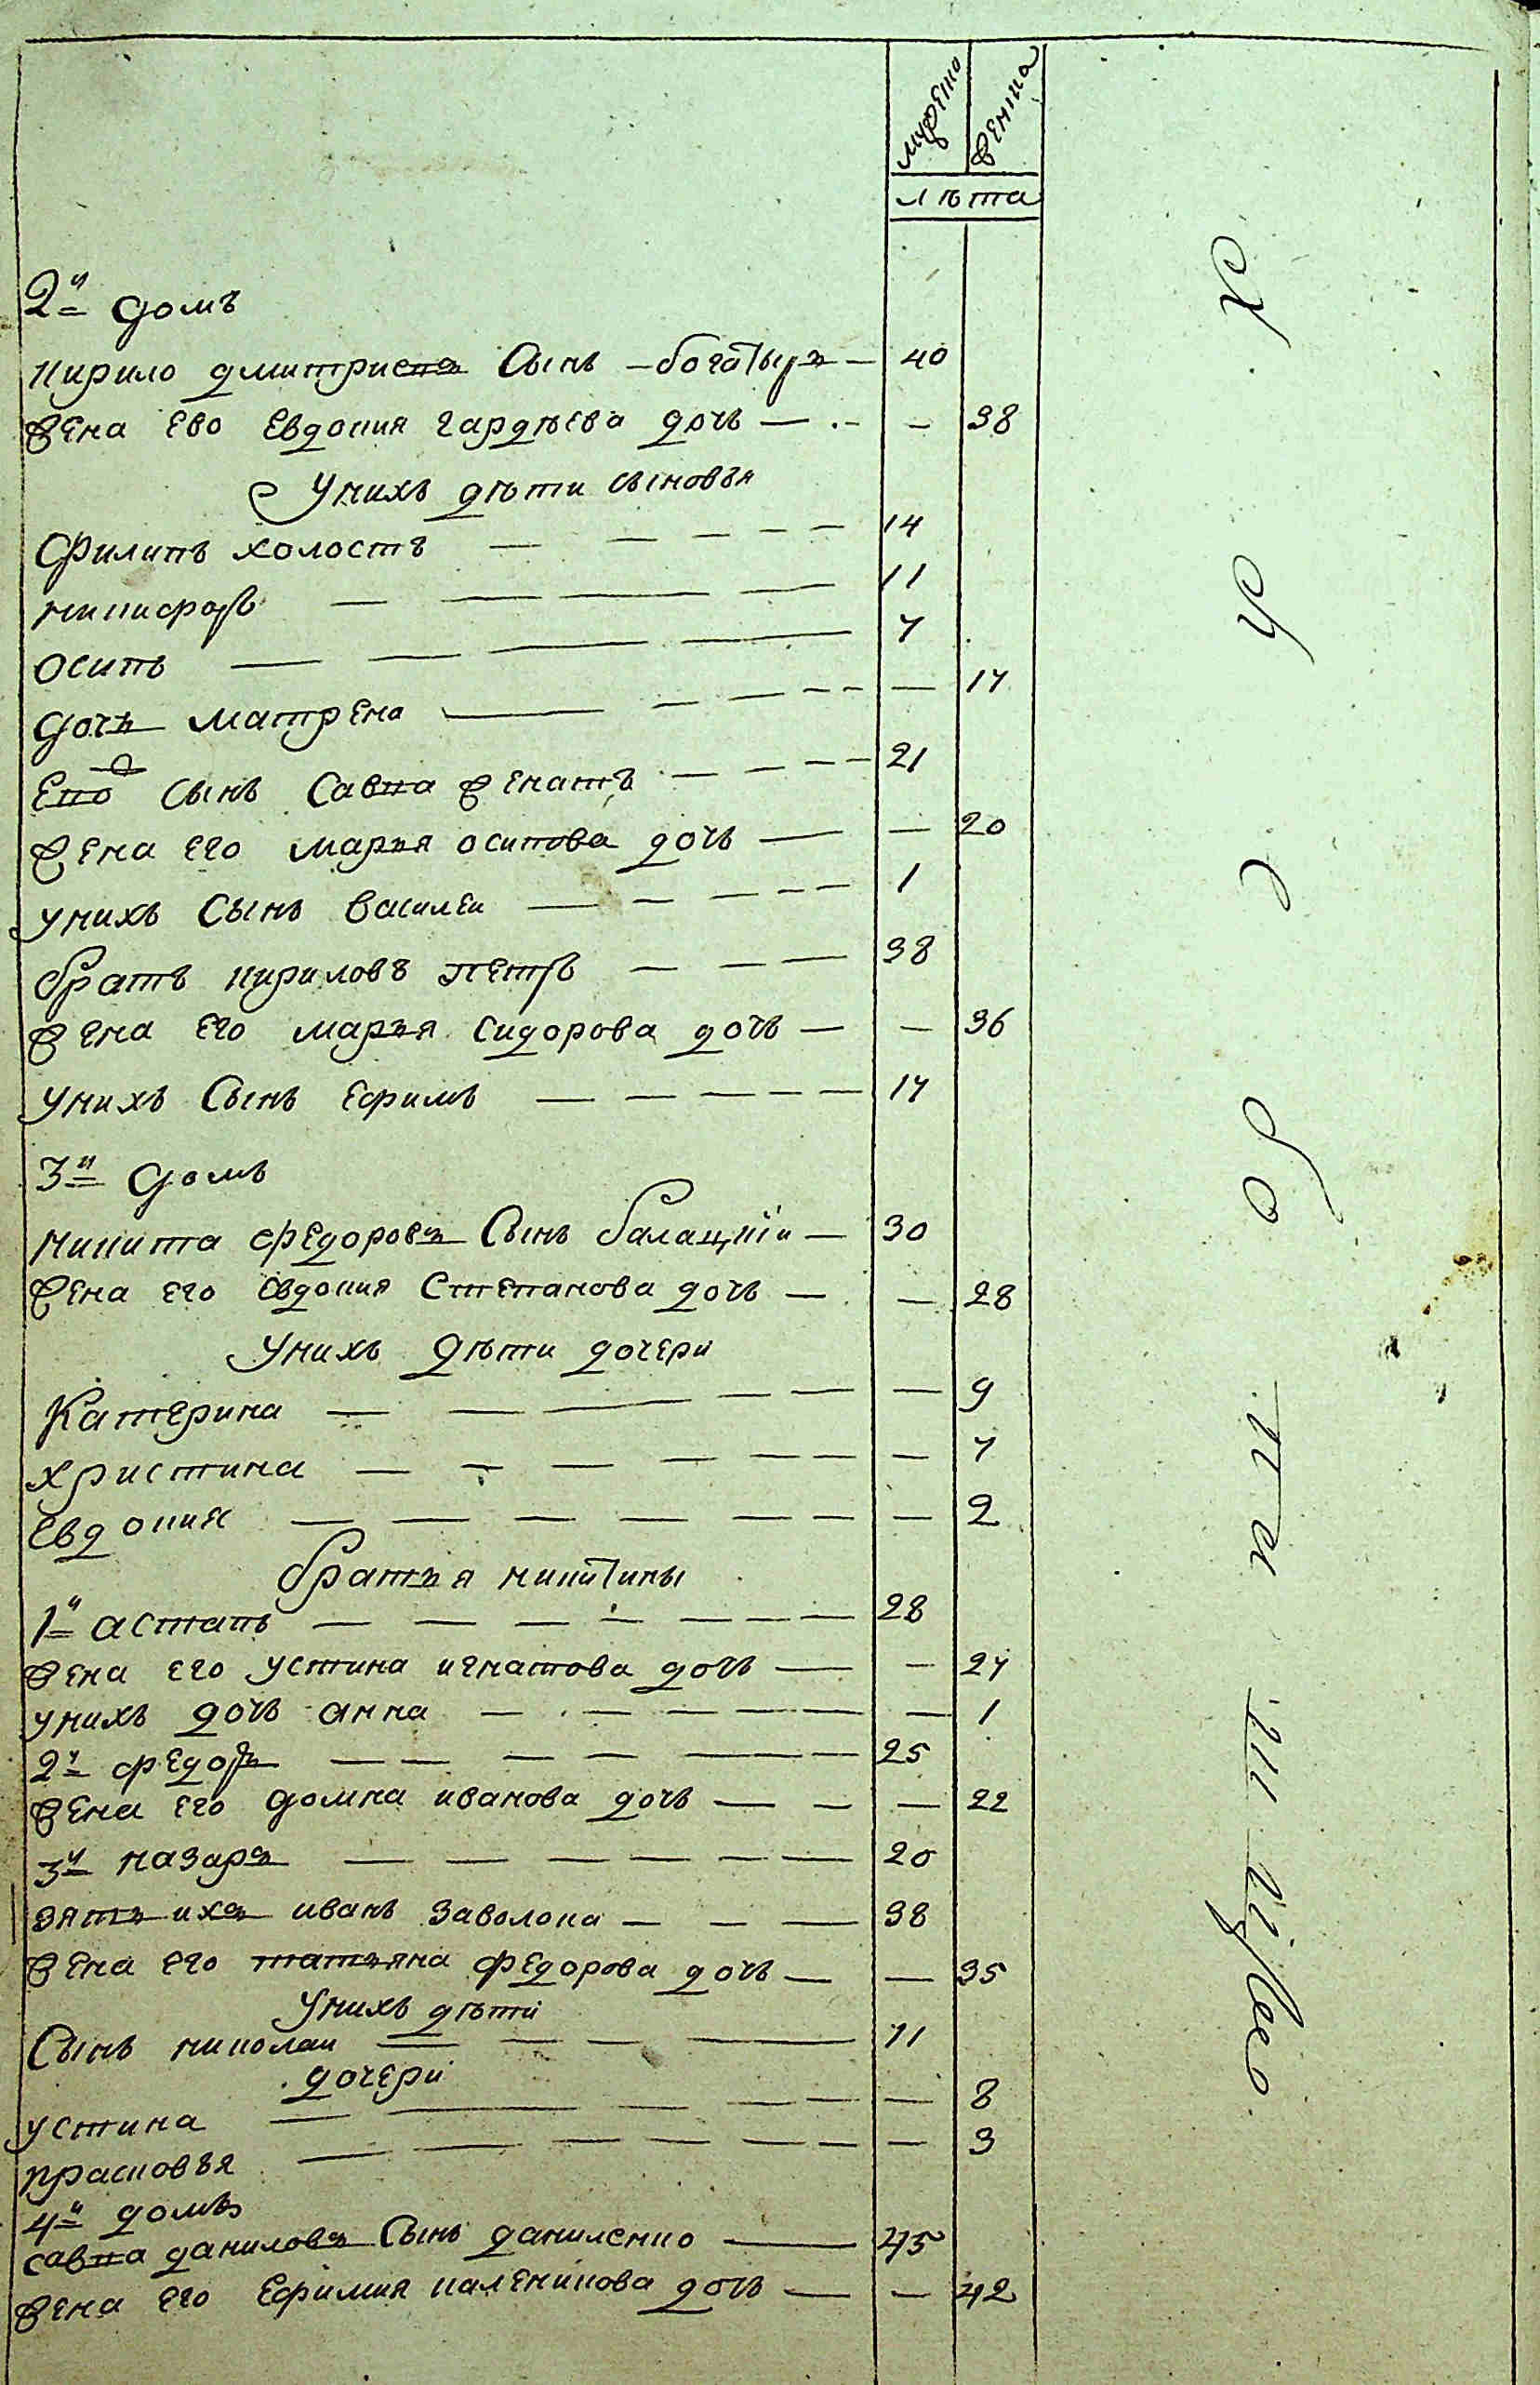 мужеско женска
лѣта
2й домъ
кирило дмитриевъ Сынъ – богатыръ – 40
жена ево Евдокия гардѣева дочь – – 38
Унихъ дѣти сыновъя
Филипъ холостъ – 14
никифоръ – 11
осипъ – 7
дочъ матрена – – 17
Ево сынъ Савка женатъ – 21
жена его маръя осипова дочь – – 20
унихъ Сынъ василеи – 1
братъ кириловъ петръ – 38
жена его маръя Сидорова дочь – – 36
унихъ Сынъ Ефимъ – 17
3й домъ
никита федоровъ Сынъ балацкїи – 30
жена его Евдокия Степанова дочь – – 28
Унихъ дѣти дочери
Катерина – – 9
христина – – 7
Евдокия – – 2
братъя никитины
1й астапъ – 28
жена его устина игнатова дочь – – 27
унихъ дочь анна – – 1
2й федоръ – 25
жена его домна иванова дочь – – 22
3й назаръ – 20
зятъ ихъ иванъ заволока – 38
жена его татъяна федорова дочь – – 35
Унихъ дѣти
Сынъ николаи – 11
дочери
устина – – 8
прасковъя – – 3
4й домъ
савка даниловъ Сынъ даниленко – 45
жена его Ефимия каленикова дочь – – 42